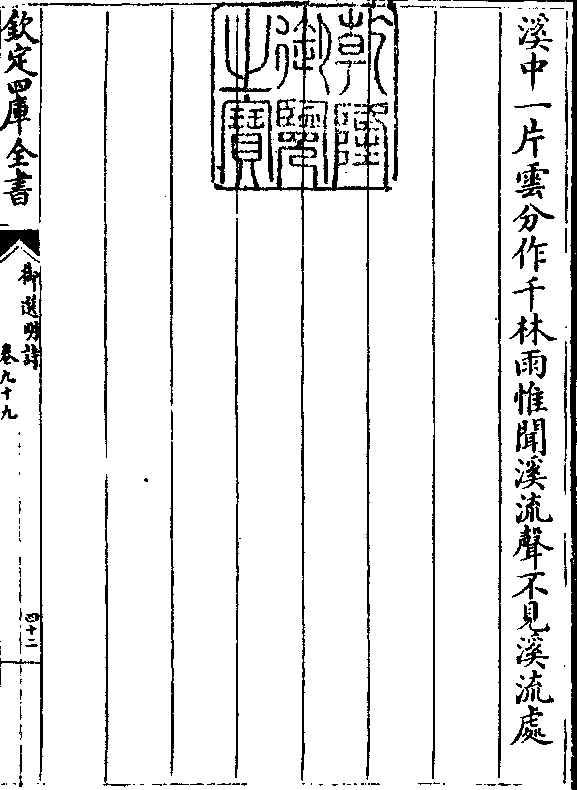 溪中一片雲分作千林雨惟聞溪流聲不見溪流處
乾隆
御覽
之寶
欽定四庫全書
御選明詩
卷九十九
四十二